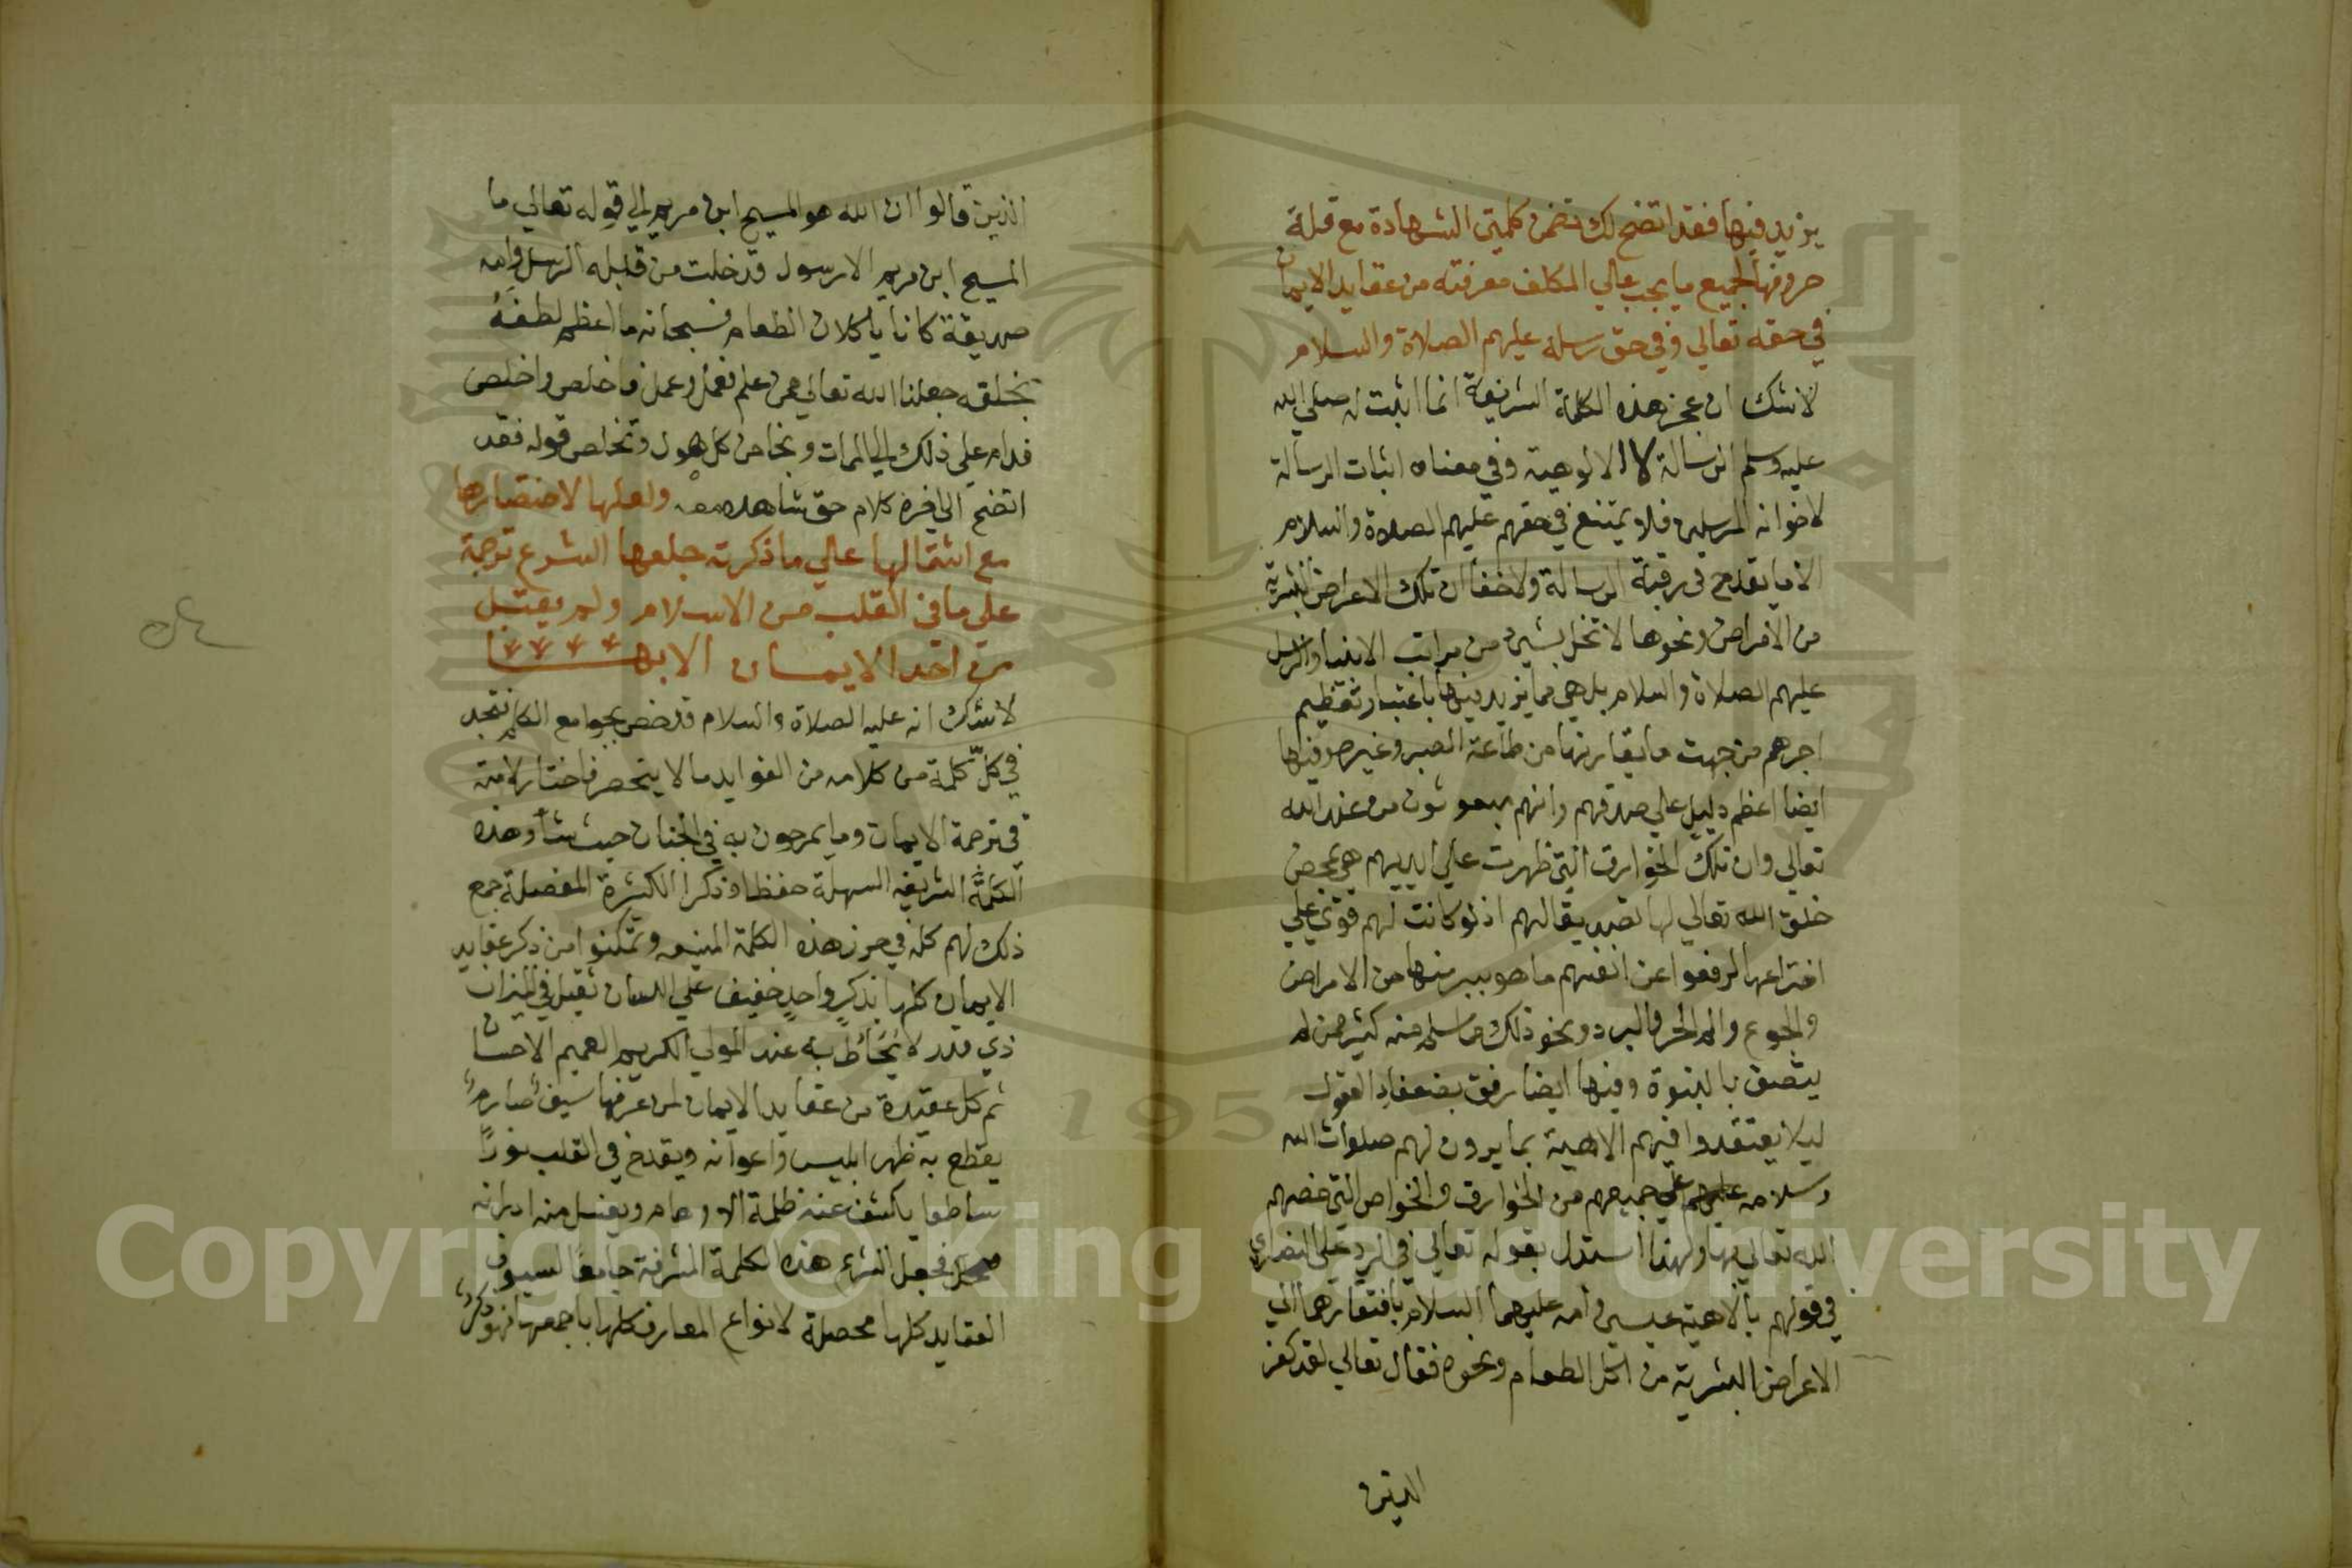 يزيد فيها فقد اتضح لك تضمن كلمتي الشهادة مع قلة
حروفها لجميع ما يجب علي المكلف معرفته من عقايد الايمان
في حقه تعالي وفي حق رسله عليهم الصلاة والسلام
لا شك ان عجز هذه الكلمة الشريفة انما اثبت له صلي الله
عليه وسلم الرسالة لا الالوهية وفي معناه اثبات الرسالة
لاخوانه المرسلين فلا يمتنع في حقهم عليهم الصلاة والسلام
الا ما يقدح في رقبة الرسالة ولا خفا ان تلك الاعراض البشرية
من الامراض ونحوها لا تخل بشي من مراتب الانبيا والرسل
عليهم الصلاة والسلام بل هي مما يزيد فيها باعتبار تعظيم
اجرهم من جهت ما يقارنها من طاعة الصبر وغيره وفيها
ايضا اعظم دليل علي صدقهم وانهم مبعوثون من عند الله
تعالي وان تلك الخوارق التي ظهرت علي ايديهم هي بمحض
خلق الله تعالي لها تصديقا لهم اذ لو كانت لهم قوة علي
اختراعها لرفعوا عن انفسهم ما هو يسير منها من الامراض
والجوع والم الحر والبرد ونحو ذلك مما سلم منه كثير ممن لم
يتصف بالنبوة وفيها ايضا رفق بضعفاء العقول
ليلا يعتقدوا فيهم الالهية بما يرون لهم صلوات الله
وسلامه علي جميعهم من الخوارق والخواص التي خصهم
الله تعالي بها ولهذا استدل بقوله تعالي في الرد علي النصاري
في قولهم بالاهية عيسي وامه عليهما السلام بافتقارهما الي
الاعراض البشرية من اكل الطعام ونحوه فقال تعالي لقد كفر
الذين
الذين قالوا ان الله هو المسيح ابن مريم الي قوله تعالي ما
المسيح ابن مريم الا رسول قد خلت من قبله الرسل وامه
صديقة كانا ياكلان الطعام فسبحانه ما اعظم لطفه
بخلقه جعلنا الله تعالي ممن علم فعمل وعمل فاخلص واخلص
فدام علي ذلك الي الممات ونجا من كل هول وتخلص قوله فقد
اتضح الي اخره كلام حق شاهده معه ولعلها لاختصارها
مع اشتمالها علي ما ذكرته جعلها الشرع ترجمة
علي ما في القلب من الاسلام ولم يقبل
من احد الايمان الا بها
لا شك انه عليه الصلاة والسلام قد خص بجوامع الكلم فتجد
في كلّ كلمة من كلامه من الفوايد ما لا ينحصر فاختار لامته
في ترجمة الايمان وما يمرحون به في الجنان حيث شاؤ هذه
الكلمة الشريفة السهلة حفظا وذكرا الكثيرة المفصلة جمع
ذلك لهم كله في حرز هذه الكلمة المنيع وتمكنوا من ذكر عقايد
الايمان كلها بذكرٍ واحدٍ خفيف علي اللسان ثقيل في الميزان
ذي قدر لا يُحَاطُ به عند المولي الكريم العميم الاحسان
ثم كل عقيدة من عقايد الايمان لمن عرفها سيف صارم
يقطع به ظهر ابليس واعوانه ويقدح في القلب نورًا
ساطعا يكشف عنه ظلمة الاوهام ويغسل منه ادرانه
فجعل الشرع هذه الكلمة المشرفة جامعًا لسيوف
العقايد كلها محصلة لانواع المعارف كلها باجمعها فهو ذكر
Copyright © King Saud University
195